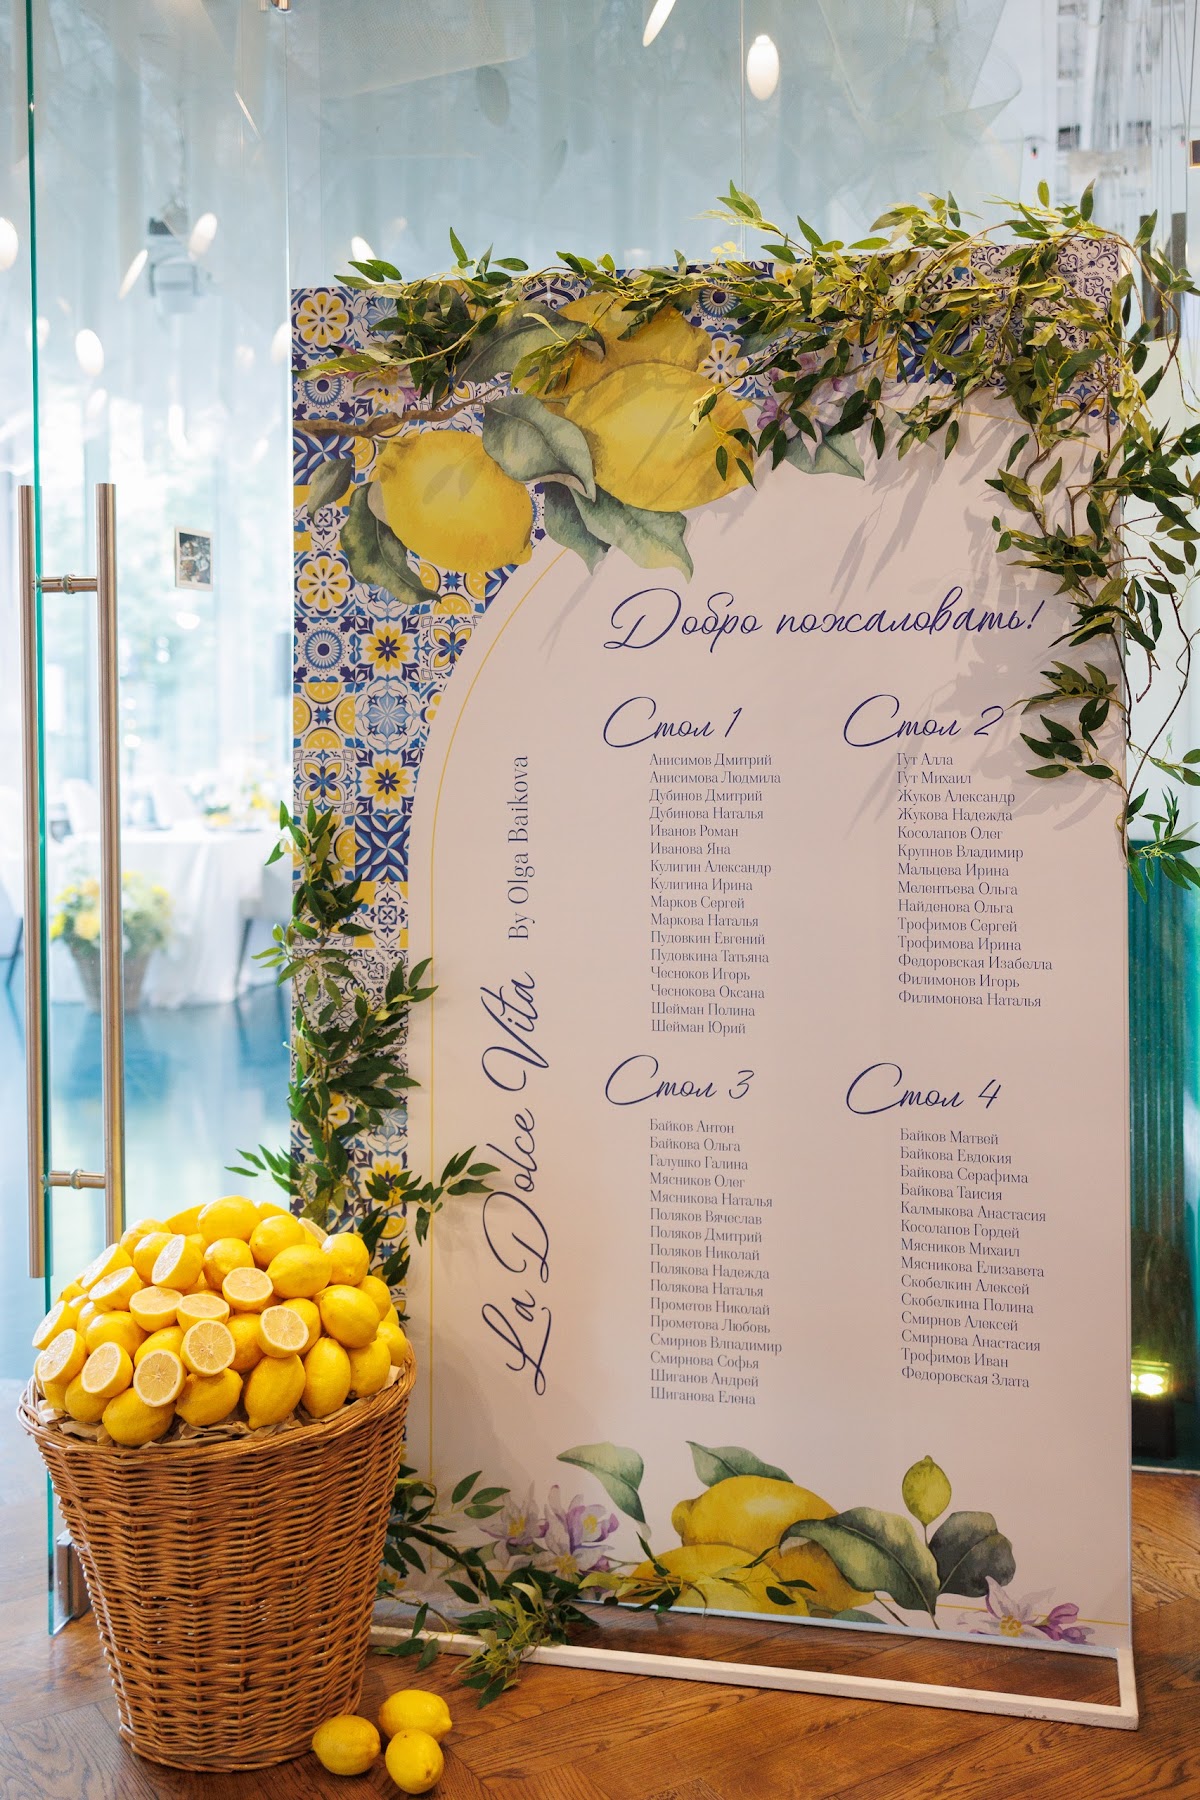 Добро пожаловать!
Стол 1
Анисимов Дмитрий
Анисимова Людмила
Дубинов Дмитрий
Дубинова Наталья
Иванов Роман
Иванова Яна
Кулигин Александр
Кулигина Ирина
Марков Сергей
Маркова Наталья
Пудовкин Евгений
Пудовкина Татьяна
Чесноков Игорь
Чеснокова Оксана
Шейман Полина
Шейман Юрий
Стол 2
Гут Алла
Гут Михаил
Жуков Александр
Жукова Надежда
Косолапов Олег
Крупнов Владимир
Мальцева Ирина
Мелентьева Ольга
Найденова Ольга
Трофимов Сергей
Трофимова Ирина
Федоровская Изабелла
Филимонов Игорь
Филимонова Наталья
Стол 3
Байков Антон
Байкова Ольга
Галушко Галина
Мясников Олег
Мясникова Наталья
Поляков Вячеслав
Поляков Дмитрий
Поляков Николай
Полякова Надежда
Полякова Наталья
Прометов Николай
Прометова Любовь
Смирнов Влпадимир
Смирнова Софья
Шиганов Андрей
Шиганова Елена
Стол 4
Байков Матвей
Байкова Евдокия
Байкова Серафима
Байкова Таисия
Калмыкова Анастасия
Косолапов Гордей
Мясников Михаил
Мясникова Елизавета
Скобелкин Алексей
Скобелкина Полина
Смирнов Алексей
Смирнова Анастасия
Трофимов Иван
Федоровская Злата
La Dolce Vita By Olga Baikova